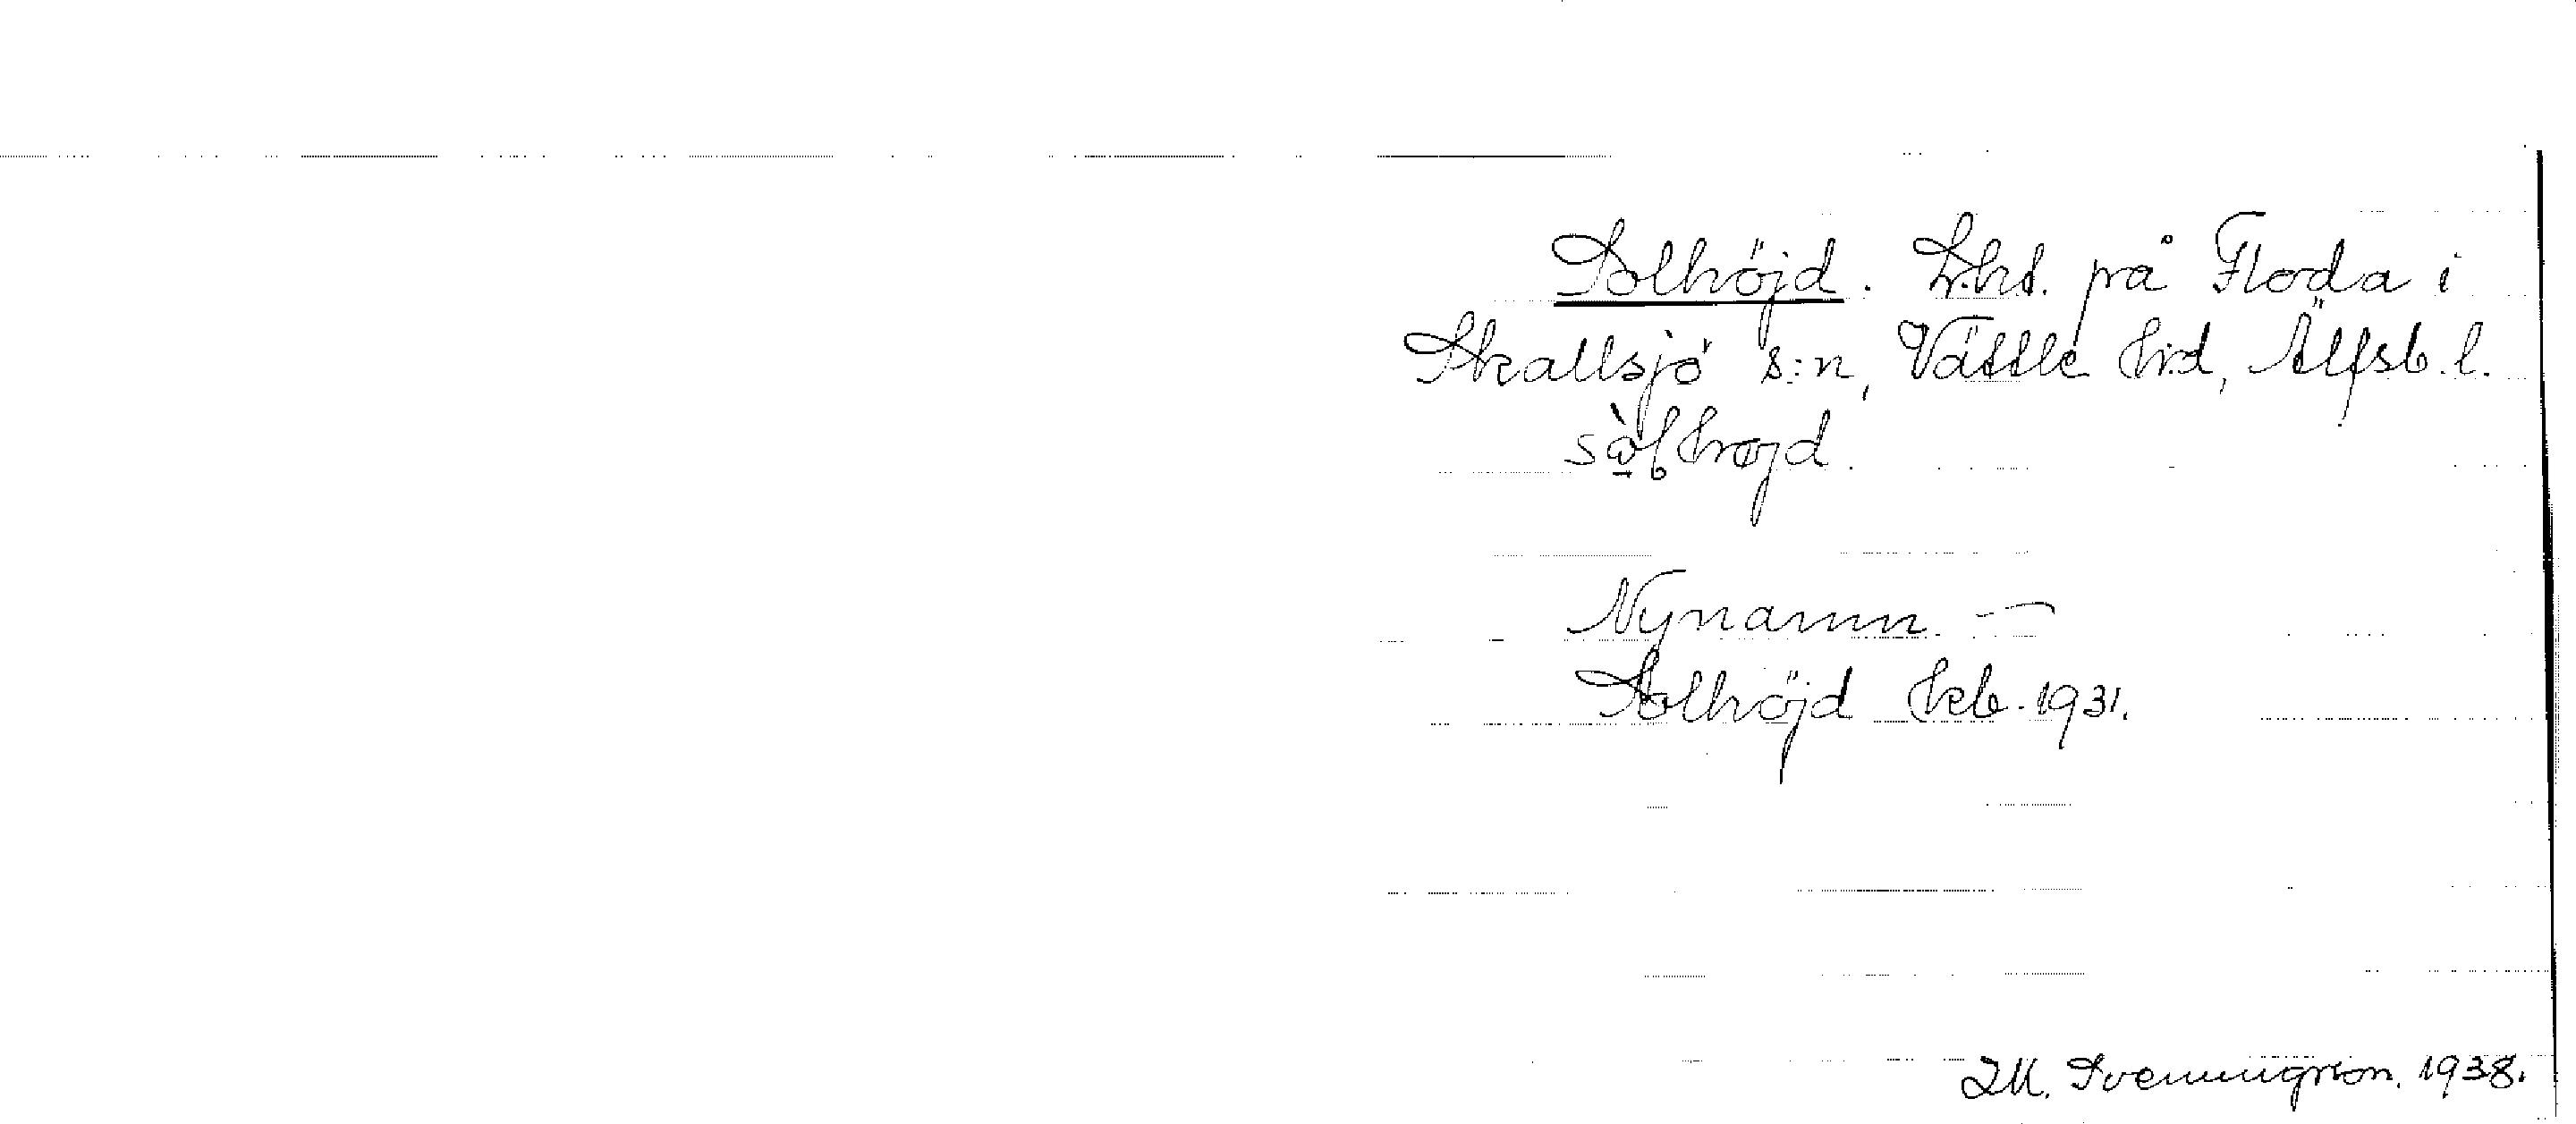 Solhöjd. Lht. på Floda i
Skallsjö s:n, Vättle hd, Älfsb. l.
Nynamn. —
Solhöjd Hcb. 1931.
M. Svenningson. 1938.